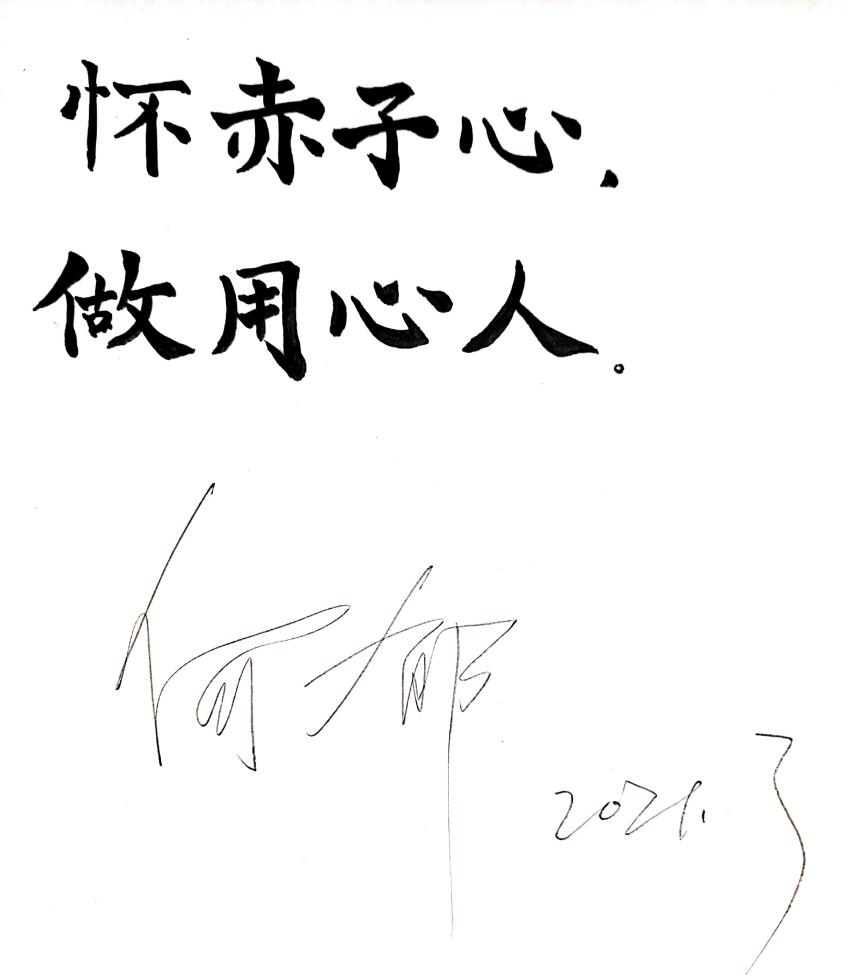 怀赤子心，
做用心人。
何郁
2021.3